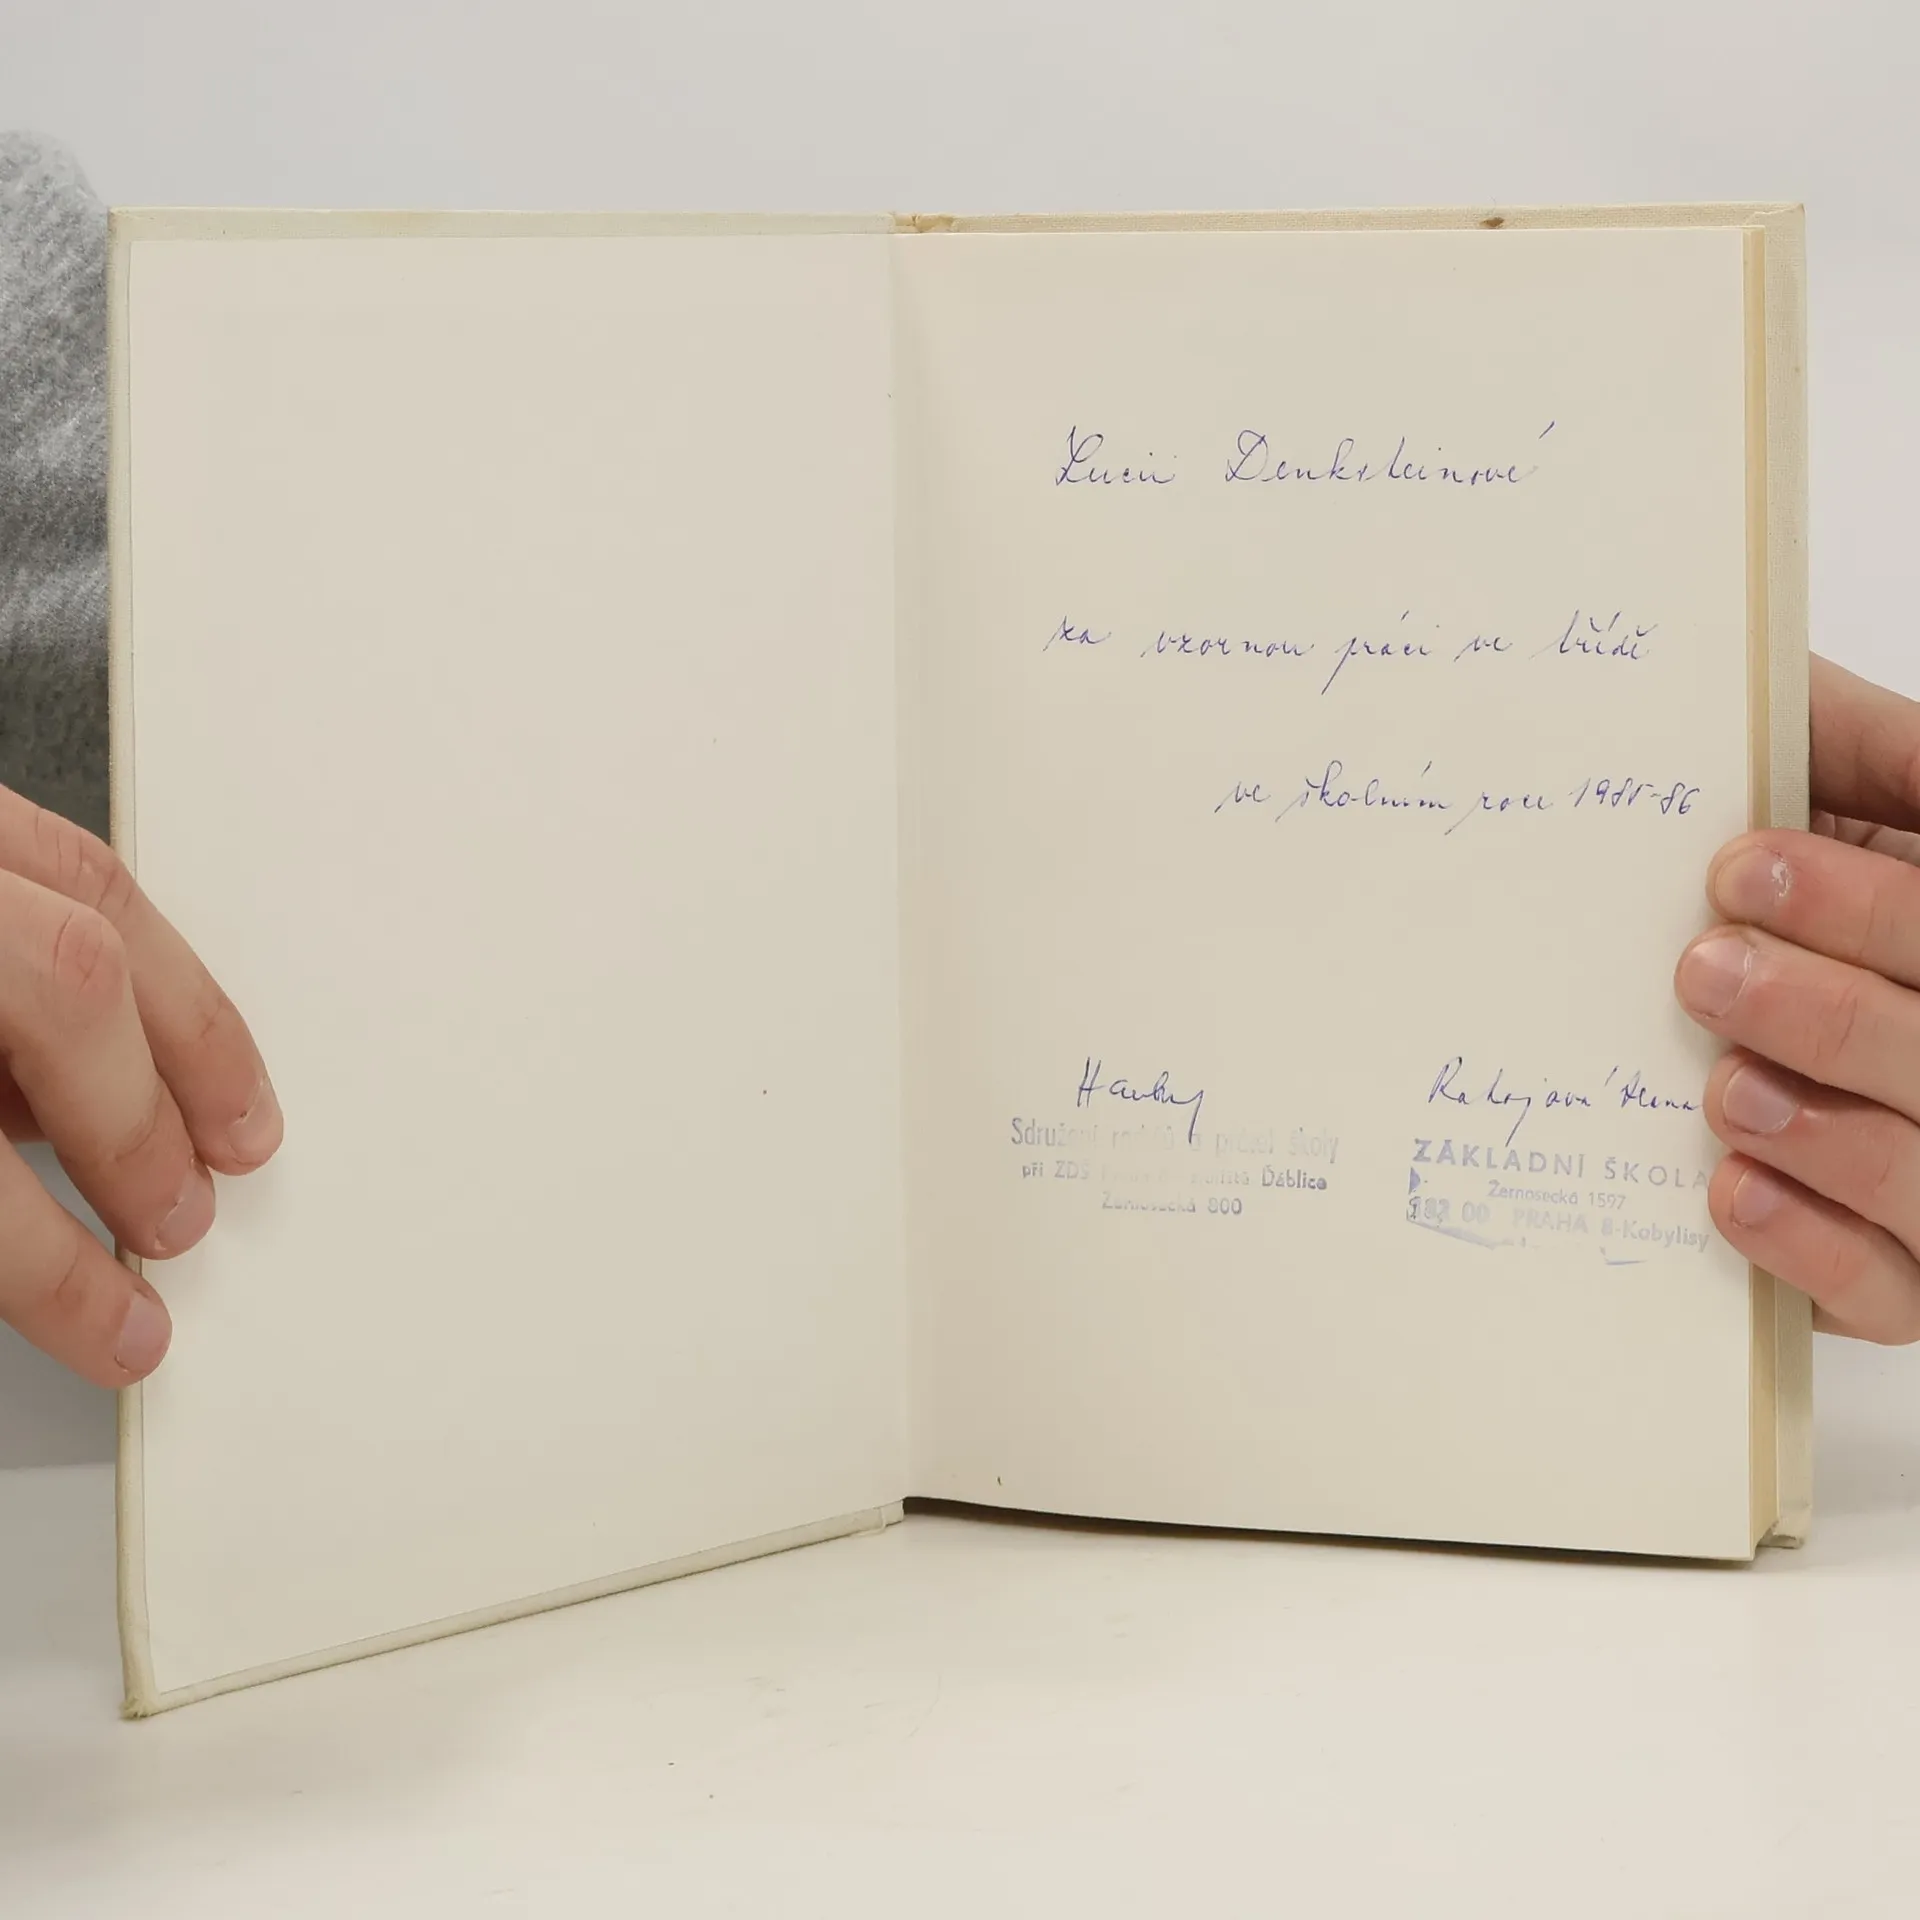 Lucii Denksteinové
za vzornou práci ve třídě
ve školním roce 1985-86
Sdružení rodičů a přátel školy
při ZDŠ Ďáblice
Žernosecká 800
ZÁKLADNÍ ŠKOLA
Žernosecká 1597
182 00 PRAHA 8-Kobylisy